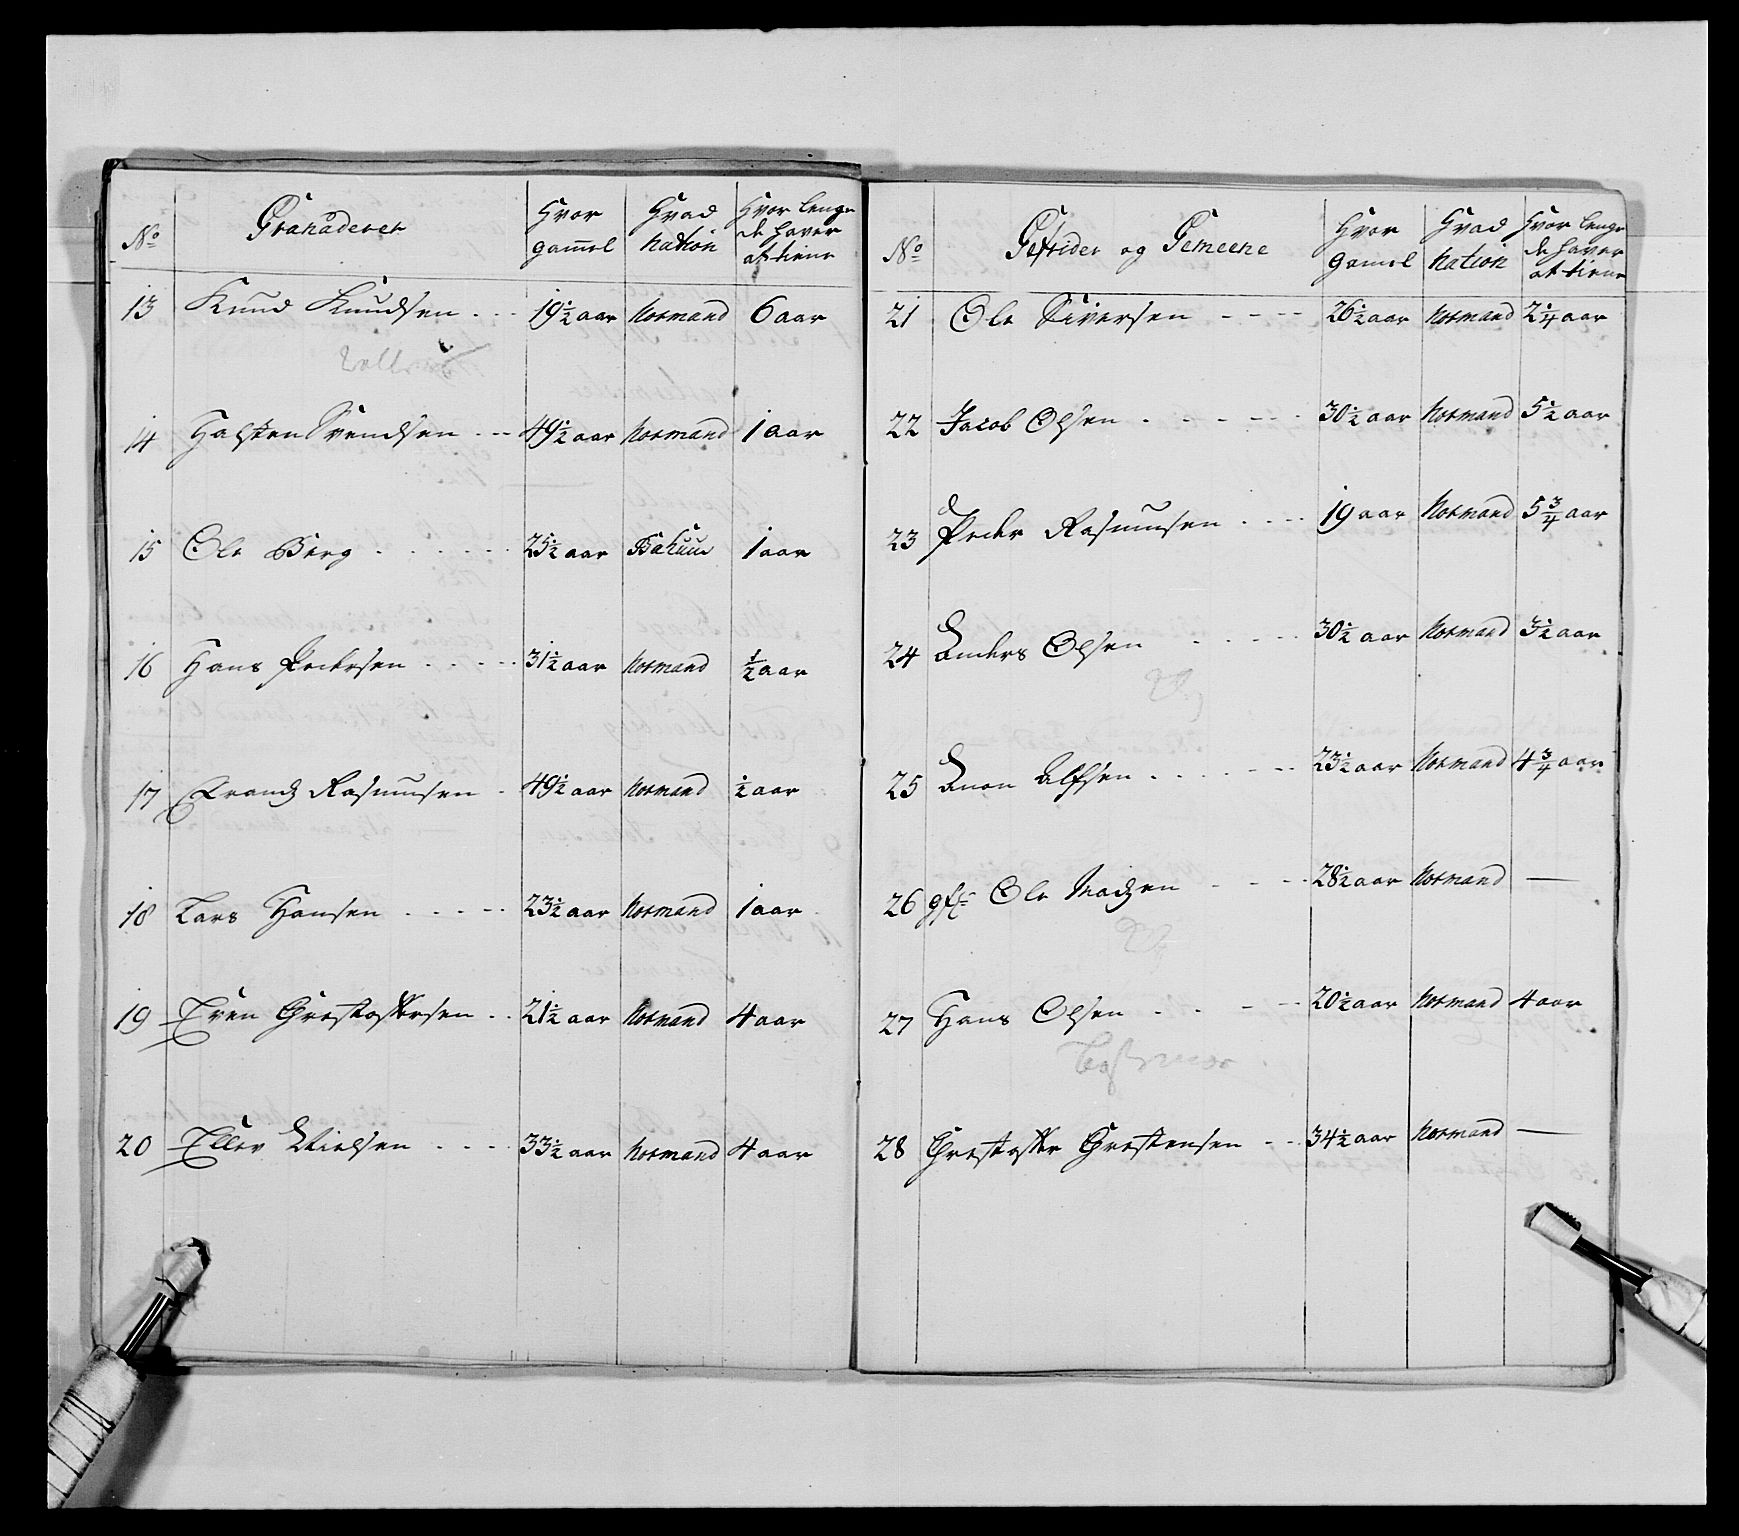 No Granaderer Hvor gammel Hvad nation Hvor lenge de haver at tiene
13 Knud Knudsen 19½ aar Normand 6 aar
14 Halsten Svendsen 49½ aar Normand 1 aar
15 Ole Berg 25½ aar Bahuus 1 aar
16 Hans Pedersen 31½ aar Normand ½ aar
17 Frandz Rasmusen 49½ aar Normand ½ aar
18 Lars Hansen 23½ aar Normand 1 aar
19 Even Grestoffersen 21½ aar Normand 4 aar
20 Ellev Nielsen 33½ aar Normand 4 aar
No Gefrider og Gemeene Hvor gamel Hvad nation Hvor lenge de haver at tiene
21 Ole Siversen 26½ aar Normand 2¼ aar
22 Jacob Olsen 30½ aar Normand 5½ aar
23 Peder Rasmusen 19 aar Normand 5¾ aar
24 Anders Olsen 30½ aar Normand 3½ aar
25 Anon Alfsen 23½ aar Normand 4¾ aar
26 gfr Ole Madzen 28½ aar Normand —
27 Hans Olsen 20½ aar Normand 4 aar
28 Grestoffer Grestensen 34½ aar Normand —